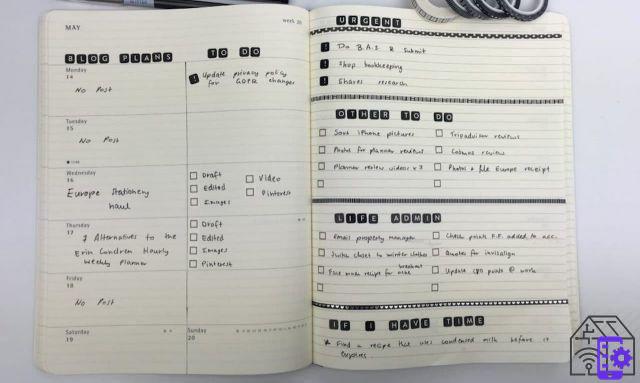 MAY
week 20
BLOG PLANS
TO DO
Monday
14
No Post
! Update privacy policy
for GDPR changes
Tuesday
15
No Post
Wednesday
16
Europe Stationery
haul
Draft
Edited
Images
Video
Pinterest
Thursday
17
7 Alternatives to the
Erin Condren Hourly
Weekly Planner
Draft
Edited
Images
Pinterest
Friday
18
No Post
Saturday
19
Sunday
20
URGENT
! Do B.A.S & Submit
! Shop bookkeeping
! Shares research
OTHER TO DO
Sort iPhone pictures
Tripadvisor reviews
Photos for planner reviews
review
Planner review videos x 3
Photos & file Europe receipt
LIFE ADMIN
Email property manager
Check points F.F. added to acc.
Switch closet to winter clothes
Quotes for invisalign
Face mask recipe for acne
breakout
Update CPD points @ work
IF I HAVE TIME
Find a recipe that uses condensed milk before it
expires